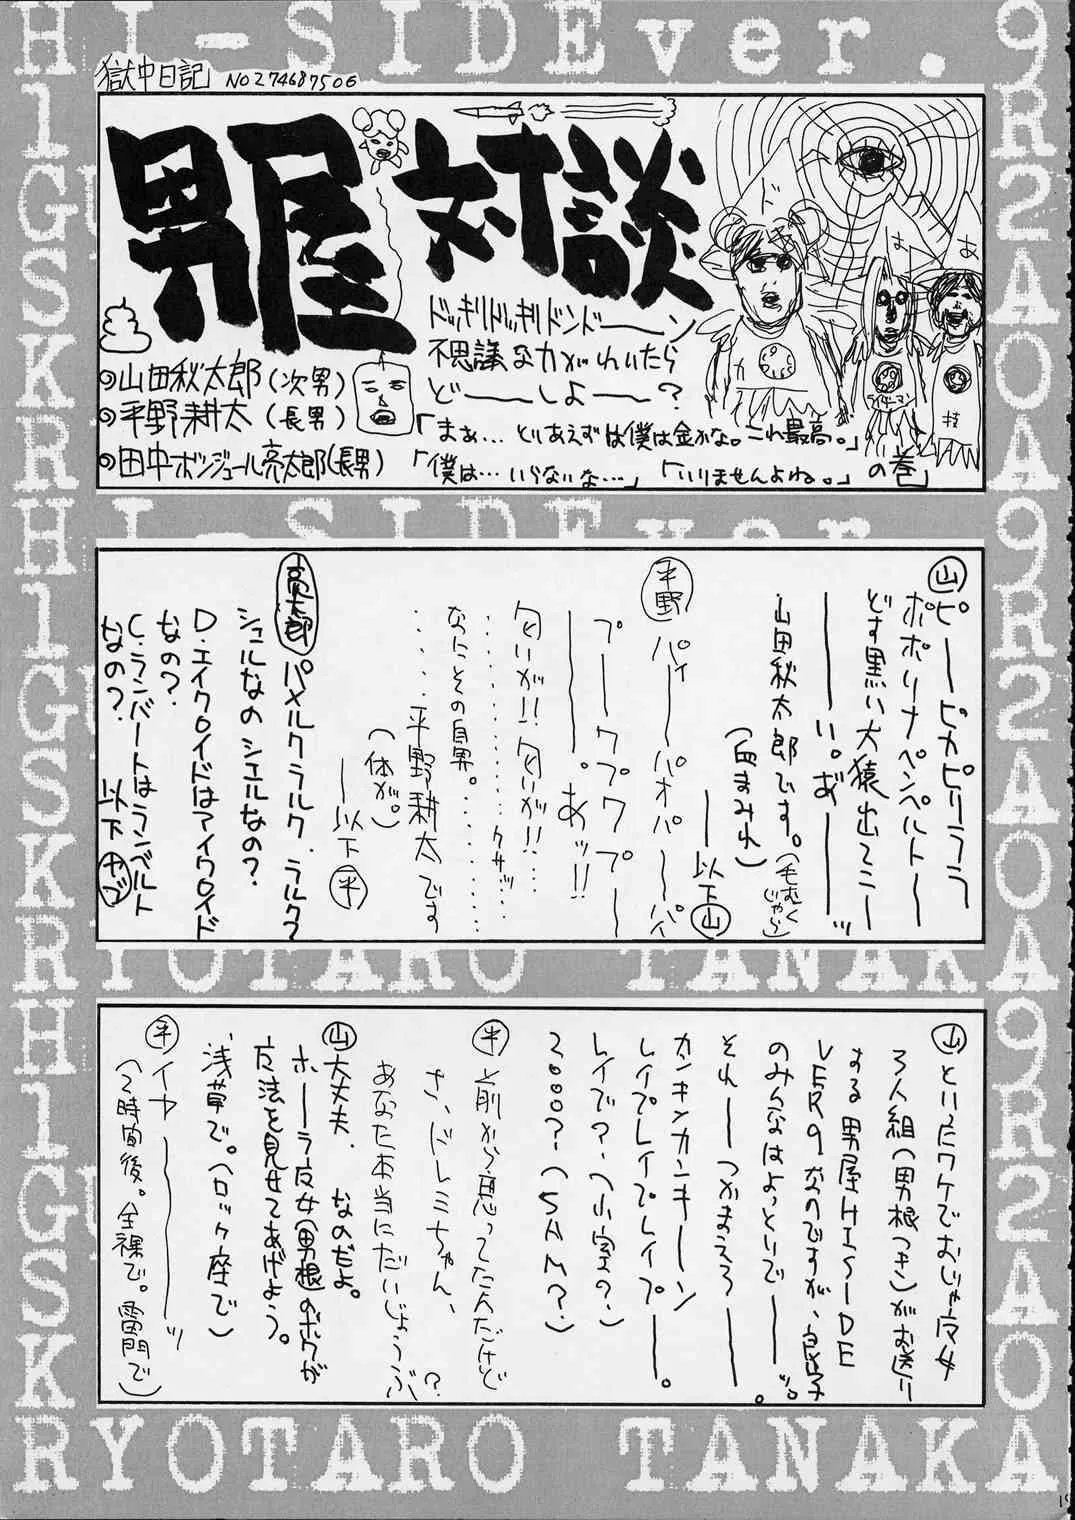 獄中日記 NO274687506
男屋対談
ドッキリドッキリドンドーーン
不思議な力がわいたら
どーーしよーー？
◎山田秋太郎(次男)
◎平野耕太(長男)
◎田中ボンジュール亮太郎(長男)
「まぁ…とりあえずは僕は金かな。これ最高。」
「僕は…いらないな…」「いりませんよね。」の巻
ど
れ
み
力
技
HI-SIDEver.9R2A0A9R2A0A9R2A0A
RYOTARO TANAKA
山 ピーーピカピリララ
ポポリナペンペルトー
どす黒い大猿出てこー
ーーーい。あ゛ーーッ
山田秋太郎です。(毛むくじゃら)
(血まみれ)
ーー以下山
平野 パイーーパオパーーパ
プーーワプワプーー
ーーー。あッ!!
匂いが!!匂いが!!
……………クサッ……
なにとその自男。
……平野耕太です
(体が。)
ーー以下平
亮太郎 パメルクラルク、ラルク？
シュルなのシエルなの？
D・エイクロイドはアイクロイド
なの？
C・ランバートはランベルト
なの？ 以下ヤブ
山 といったワケでおじゃ魔女
3人組(男根つき)がお送り
する男屋HISーIDE
VER9なのですが、良い子
のみんなはよっといでーーッ。
それーーつかまえろーーー。
カンキンカンキーーン
レイプレイプレイプーーー。
レイで？(小室の？)
2000？(SAM？)
平 前から思ってたんだけど
さ、ドレミちゃん、
あなた本当にだいじょうぶ？
山 大丈夫、なのだよ。
ホーーラ魔女(男根のボクが
魔法を見せてあげよう。
浅草で。(ロック座で)
平 イヤーーーッ
(2時間後。全裸で。雷門で)